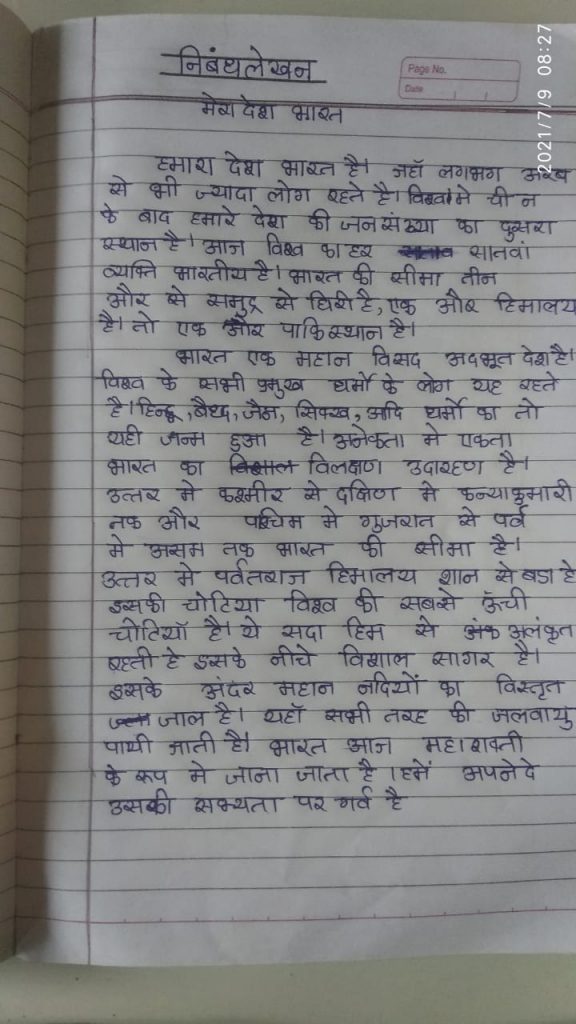 निबंधलेखन
Page No.
Date
2021/7/9 08:27
मेरा देश भारत
हमारा देश भारत है। जहाँ लगभग अरब
से भी ज्यादा लोग रहते है। विश्व मे चीन
के बाद हमारे देश की जनसंख्या का दुसरा
स्थान है। आज विश्व का हर सातवां
व्यक्ति भारतीय है। भारत की सीमा तीन
और से समुद्र से घिरी है, एक और हिमालय
है। तो एक और पाकिस्थान है।
भारत एक महान विसद अदभूत देश है।
विश्व के सभी प्रमुख धर्मो के लोग यह रहते
है। हिन्दू, बैध्द, जैन, सिक्ख, आदि धर्मो का तो
यही जन्म हुआ है। अनेकता मे एकता
भारत का विलक्षण उदाहरण है।
उत्तर मे कश्मीर से दक्षिण मे कन्याकुमारी
तक और पश्चिम मे गुजरात से पर्व
मे असम तक भारत की सीमा है।
उत्तर मे पर्वतराज हिमालय शान से बडा हे
इसकी चोटिया विश्व की सबसे ऊँची
चोटियाँ है। ये सदा हिम से अलंकृत
रहती हे इसके नीचे विशाल सागर है।
इसके अंदर महान नदियों का विस्तृत
जाल है। यहाँ सभी तरह की जलवायु
पायी जाती है। भारत आज महाशक्ती
के रूप मे जाना जाता है। हमें अपने दे
उसकी सभ्यता पर गर्व है